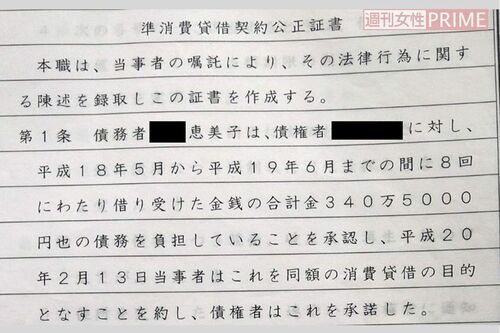 週刊女性PRIME
準消費貸借契約公正証書
本職は、当事者の嘱託により、その法律行為に関す
る陳述を録取しこの証書を作成する。
第1条 債務者 恵美子は、債権者 に対し、
平成18年5月から平成19年6月までの間に8回
にわたり借り受けた金銭の合計金340万5000
円也の債務を負担していることを承認し、平成20
年2月13日当事者はこれを同額の消費貸借の目的
となすことを約し、債権者はこれを承諾した。